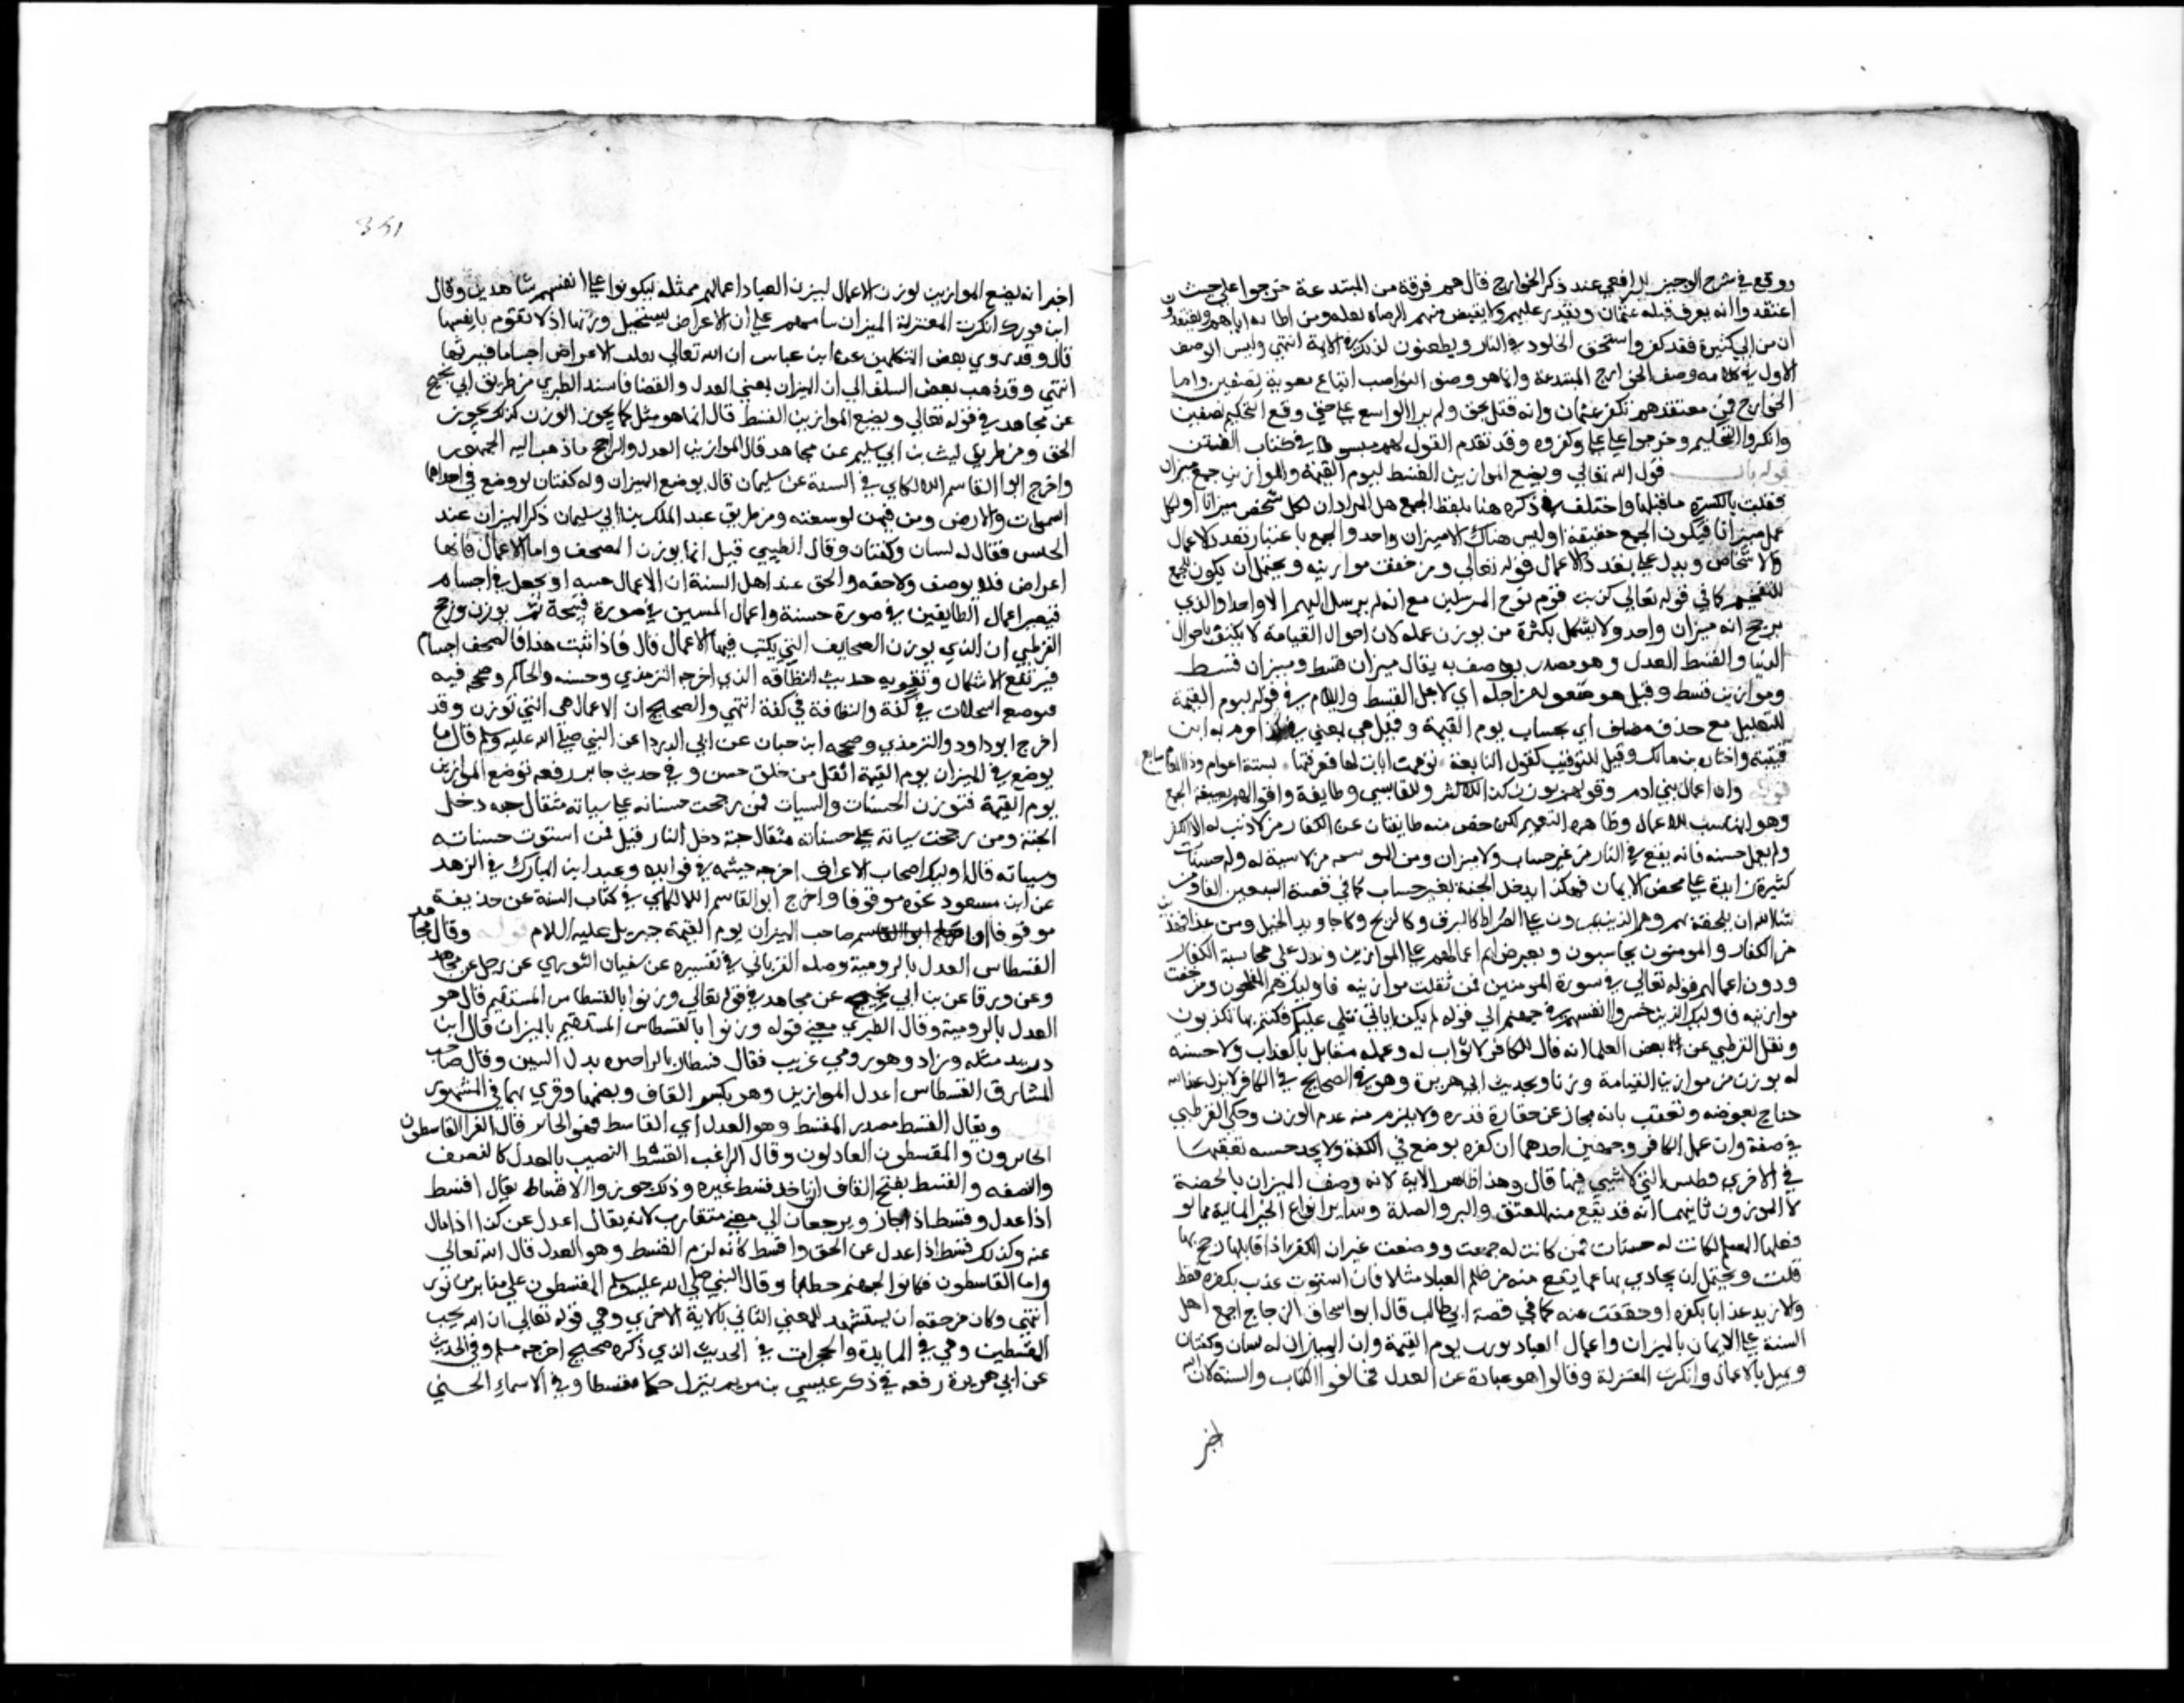 ووقع في شرح الوجيز للرافعي عند ذكر الخوارج قال هم فرقة من المبتدعة خرجوا على حيث
اعتقدوا انه يعرف قتلة عثمان ويقدر عليهم ولا يقتص منهم لرضاه بقتله ومن اطا ته اياهم ويعتقدون
ان من اتي كبيرة فقد كفر واستحق الخلود في النار ويطعنون لذلك في الايمة انتهي وليس الوصف
الاول في كلامه وصف الخوارج المبتدعة وانما هو وصف النواصب اتباع معوية بصفين واما
الخوارج فمن معتقدهم تكفير عثمان وانه قتل بحق ولم يزالوا مع علي حتى وقع التحكيم بصفين
وانكروا التحكيم وخرجوا علي علي وكفروه وقد تقدم القول فيهم مبسوطا في كتاب الفتن
قوله باب قول الله تعالي ويضع الموازين القسط ليوم القيمة والموازين جمع ميزان
فقلبت بالكسرة ما قبلها واختلف في ذكره هنا بلفظ الجمع هل المراد ان لكل شخص ميزانا او لكل
عمل ميزانا فيكون الجمع حقيقة او ليس هناك الا ميزان واحد والجمع باعتبار تعدد الاعمال
والاشخاص ويدل على تعدد الاعمال قوله تعالي ومن خفت موازينه ويحتمل ان يكون الجمع
للتفخيم كما في قوله تعالي كذبت قوم نوح المرسلين مع انه لم يرسل اليهم الا واحد والذي
يرجح انه ميزان واحد ولا يشكل بكثرة من يوزن عمله لان احوال القيامة لا تكيف باحوال
الدنيا والقسط العدل وهو مصدر يوصف به يقال ميزان قسط وميزان قسط
وموازين قسط وقيل هو مفعول من اجله اي لاجل القسط واللام في قوله ليوم القيمة
للتعليل مع حذف مضاف اي لحساب يوم القيمة وقيل هي بمعني في كذا جزم به ابن
قتيبة واختاره بن مالك وقيل للتوقيت كقول النابغة توهمت ايات لها فعرفتها لستة اعوام وذا العام سابع
قوله وان اعمال بني ادم وقولهم يوزن كذا للاكثر وللقابسي وطايفة واقوالهم بصيغة الجمع
وهو المناسب للاعمال وظاهره التعميم لكن خص منه طايفتان من الكفار من لا ذنب له الا الكفر
ولم يعمل حسنة فانه يقع في النار من غير حساب ولا ميزان ومن المومنين من لا سيئة له وله حسنات
كثيرة زايدة على محض الايمان فهذا يدخل الجنة بغير حساب كما في قصة السبعين الفا ومن
شا الله ان يلحقه بهم وهم الذين يمرون على الصراط كالبرق وكالريح وكاجاويد الخيل ومن عدا هذين
من الكفار والمومنون يحاسبون وتعرض اعمالهم على الموازين ويدل على محاسبة الكفار
ووزن اعمالهم قوله تعالي في سورة المومنين فمن ثقلت موازينه فاوليك هم المفلحون ومن خفت
موازينه فاوليك الذين خسروا انفسهم في جهنم الي قوله الم تكن اياتي تتلي عليكم فكنتم بها تكذبون
ونقل القرطبي عن بعض العلما انه قال الكافر لا ثواب له وعمله مقابل بالعذاب ولا حسنة
له يوزن في موازين القيامة وزنا وبحديث ابي هريرة وهو في الصحيح في الكافر لا يزن عند الله
جناح بعوضة وتعقب بانه مجاز عن حقارة قدره ولا يلزم منه عدم الوزن وحكي القرطبي
في صفة وزن عمل الكافر وجهين احدهما ان كفره يوضع في الكفة ولا يجد حسنة يضعها
في الاخري فتطيش التي لا شيي فيها قال وهذا ظاهر الاية لانه وصف الميزان بالخفة
لا الموزون ثانيهما انه قد يقع منه العتق والبر والصلة وساير انواع الخير المالية مما لو
فعلها المسلم لكانت له حسنات فمن كانت له جمعت ووضعت غير ان الكفر اذا قابلها رجح بها
قلت ويحتمل ان يجازي بها عما يقع منه من ظلم العباد مثلا فان استوت عذب بكفره فقط
والا زيد عذابا بكفره او خففت عنه كما في قصة ابي طالب قال ابو اسحاق الزجاج اجمع اهل
السنة على الايمان بالميزان واعمال العباد توزن يوم القيمة وان الميزان له لسان وكفتان
ويميل بالاعمال وانكرت المعتزلة وقالوا هو عبارة عن العدل فخالفوا الكتاب والسنة لان الله
اخبر
351
اخبر انه يضع الموازين لوزن الاعمال ليزن العباد اعمالهم ممثلة ليكونوا على انفسهم شاهدين وقال
ابن فورك انكرت المعتزلة الميزان بنا منهم على ان الاعراض يستحيل وزنها اذ لا تقوم بانفسها
قال وقد روي بعض المتكلمين عن ابن عباس ان الله تعالي يقلب الاعراض اجساما فيزنها
انتهي وقد ذهب بعض السلف الي ان الميزان بمعني العدل والقضا فاسند الطبري من طريق ابي نجيح
عن مجاهد في قوله تعالي ويضع الموازين القسط قال انما هو مثل كما يجوز الوزن كذلك يجوز
الحق ومن طريق ليث بن ابي سليم عن مجاهد قال الموازين العدل والراجح ما ذهب اليه الجمهور
واخرج ابوا القاسم اللالكاي في السنة عن سليمان قال يوضع الميزان وله كفتان لو وضع في احداهما
السموات والارض ومن فيهن لوسعته ومن طريق عبد الملك بن ابي سليمان ذكر الميزان عند
الحسن فقال له لسان وكفتان وقال الطيبي قيل انما يوزن الصحف واما الاعمال فانها
اعراض فلا توصف ولا خفه والحق عند اهل السنة ان الاعمال حينيذ او تجعل في اجسام
فتصير اعمال الطايعين في صورة حسنة واعمال المسين في صورة قبيحة ثم يوزن ورجح
القرطبي ان الذي يوزن الصحايف التي يكتب فيها الاعمال قال فاذا اثبت هذا فالصحف اجسام
فيرتفع الاشكال وتقويه حديث البطاقة الذي اخرجه الترمذي وحسنه والحاكم وصححه فيه
فتوضع السجلات في كفة والبطاقة في كفة انتهي والصحيح ان الاعمال هي التي توزن وقد
اخرج ابو داود والترمذي وصححه ابن حبان عن ابي الدردا عن النبي صلي الله عليه وسلم قال ما
يوضع في الميزان يوم القيمة اثقل من خلق حسن وفي حديث جابر رفعه توضع الموازين
يوم القيمة فتوزن الحسنات والسيات فمن رجحت حسناته على سياته مثقال حبه دخل
الجنة ومن رجحت سياته على حسناته مثقال حبة دخل النار قيل فمن استوت حسناته
وسياته قال اوليك اصحاب الاعراف اخرجه خيثمه في فوايده وعبد ابن المبارك في الزهد
عن ابن مسعود نحوه موقوفا واخرج ابو القاسم اللالكاي في كتاب السنة عن حذيفة
موقوفا ان صاحب الميزان يوم القيمة جبريل عليه السلام قوله وقال مجاهد
القسطاس العدل بالرومية وصله الفريابي في تفسيره عن سفيان الثوري عن رجل عن مجاهد
وعن ورقا عن بن ابي نجيح عن مجاهد في قوله تعالي وزنوا بالقسطاس المستقيم قال هو
العدل بالرومية وقال الطبري معني قوله وزنوا بالقسطاس المستقيم بالميزان قال ابن
دريد مثله وزاد وهو رومي عريب فقال قسطار بالرا اخره بدل السين وقال صاحب
المشارق القسطاس اعدل الموازين وهو بكسر القاف وبضمها وقري بهما في المشهور
ويقال القسط مصدر المقسط وهو العدل اي القاسط فهو الجاير قال الفرا القاسطون
الجايرون والمقسطون العادلون وقال الراغب القسط النصيب بالعدل كالنصف
والنصفه والقسط بفتح القاف ان ياخذ قسط غيره وذلك جور والاقساط يقال اقسط
اذا عدل وقسط اذا جار ويرجعان الي معني متقارب لانه يقال اعدل عن كذا اذا مال
عنه وكذلك قسط اذا عدل عن الحق واقسط كانه لزم القسط وهو العدل قال الله تعالي
واما القاسطون فكانوا لجهنم حطبا وقال النبي صلي الله عليه وسلم المقسطون علي منابر من نور
انتهي وكان من حقه ان يستشهد للمعني الثاني بالاية الاخري وهي قوله تعالي ان الله يحب
المقسطين وهي في المايدة والحجرات في الحديث الذي ذكره صحيح اخرجه مسلم وفي الحديث
عن ابي هريرة رفعه في ذكر عيسي بن مريم ينزل حكما مقسطا وفي الاسماء الحسني